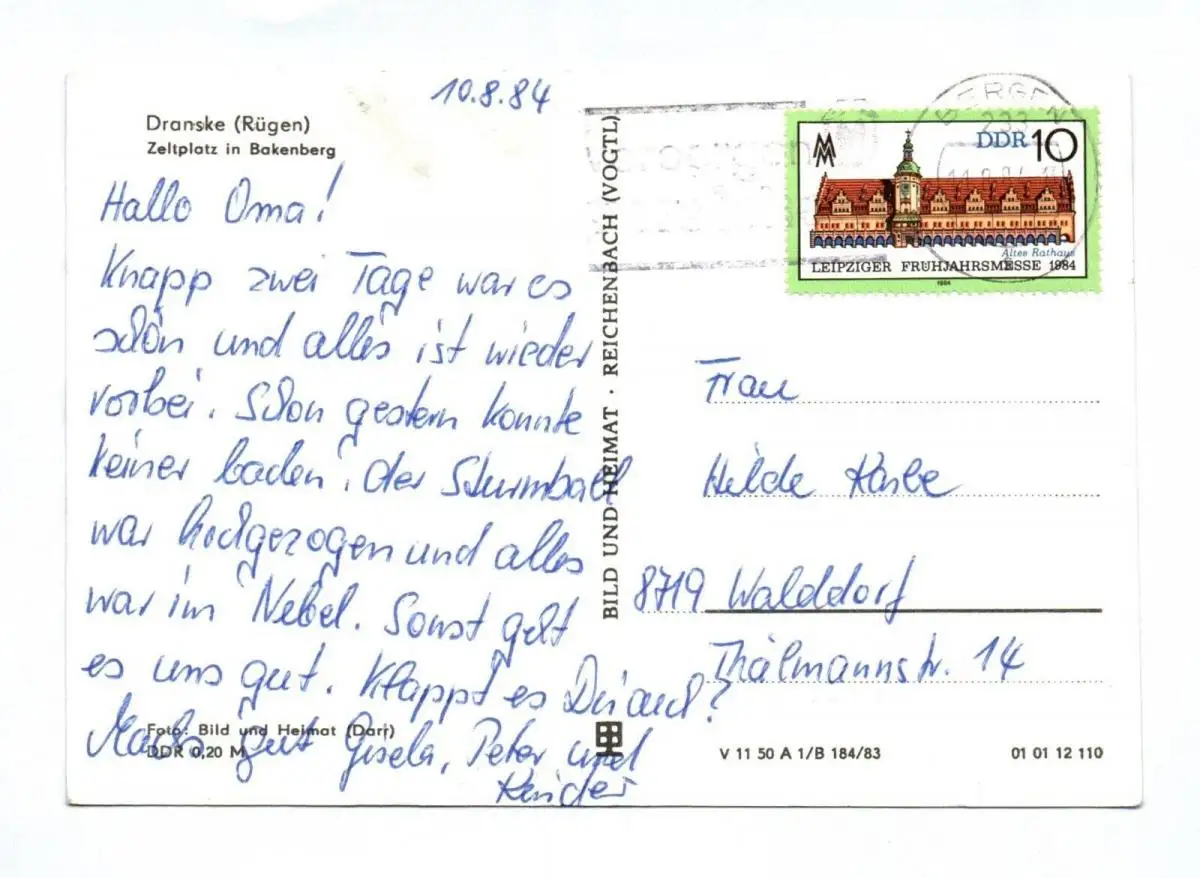 10.8.84
Dranske (Rügen)
Zeltplatz in Bakenberg
Hallo Oma!
Knapp zwei Tage war es
schön und alles ist wieder
vorbei. Schon gestern konnte
keiner baden, der Sturmball
war hochgezogen und alles
war im Nebel. Sonst geht
es uns gut. Klappt es Dir auch?
Machs gut Gisela, Peter und
Kinder
Foto: Bild und Heimat (Darr)
DDR 0,20 M
BILD UND HEIMAT · REICHENBACH (VOGTL)
BERGEN
233
DDR 10
Altes Rathaus
LEIPZIGER FRÜHJAHRSMESSE 1984
1984
Frau
Hilde
8719 Walddorf
Thälmannstr. 14
V 11 50 A 1/B 184/83
01 01 12 110